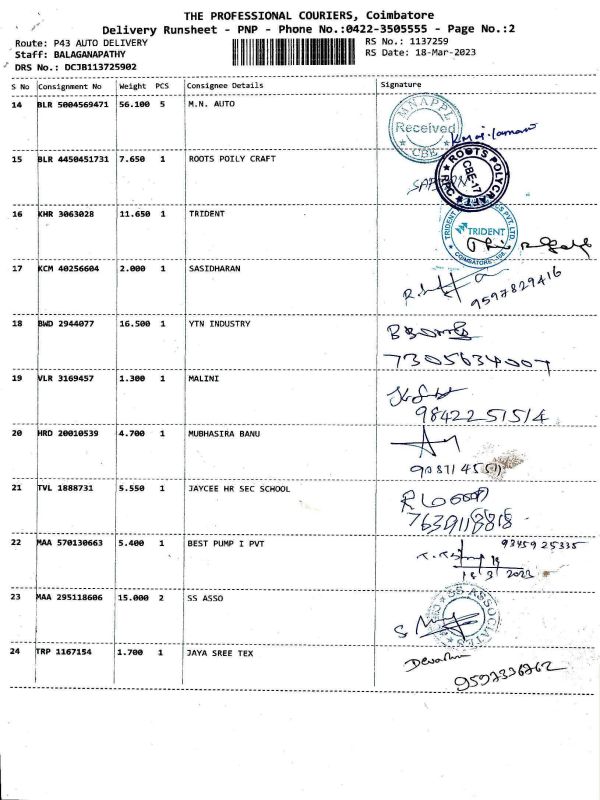 THE PROFESSIONAL COURIERS, Coimbatore
Delivery Runsheet - PNP - Phone No.:0422-3505555 - Page No.:2
Route: P43 AUTO DELIVERY
RS No.: 1137259
Staff: BALAGANAPATHY
RS Date: 18-Mar-2023
DRS No.: DCJB113725902
S No Consignment No Weight PCS Consignee Details Signature
14 BLR 5004569471 56.100 5 M.N. AUTO
MNAPPL Received CBE
15 BLR 4450451731 7.650 1 ROOTS POILY CRAFT
ROOTS POLYCRAFT CBE-17 RPC
16 KHR 3063028 11.650 1 TRIDENT
TRIDENT PVT. LTD TRIDENT COIMBATORE
17 KCM 40256604 2.000 1 SASIDHARAN
9597829416
18 BWD 2944077 16.500 1 YTN INDUSTRY
7305634007
19 VLR 3169457 1.300 1 MALINI
9842251514
20 HRD 20010539 4.700 1 MUBHASIRA BANU
21 TVL 1888731 5.550 1 JAYCEE HR SEC SCHOOL
22 MAA 570130663 5.400 1 BEST PUMP I PVT
9345925335
18 3 2023
23 MAA 295118606 15.000 2 SS ASSO
SS ASSOCIATES
24 TRP 1167154 1.700 1 JAYA SREE TEX
9597336762